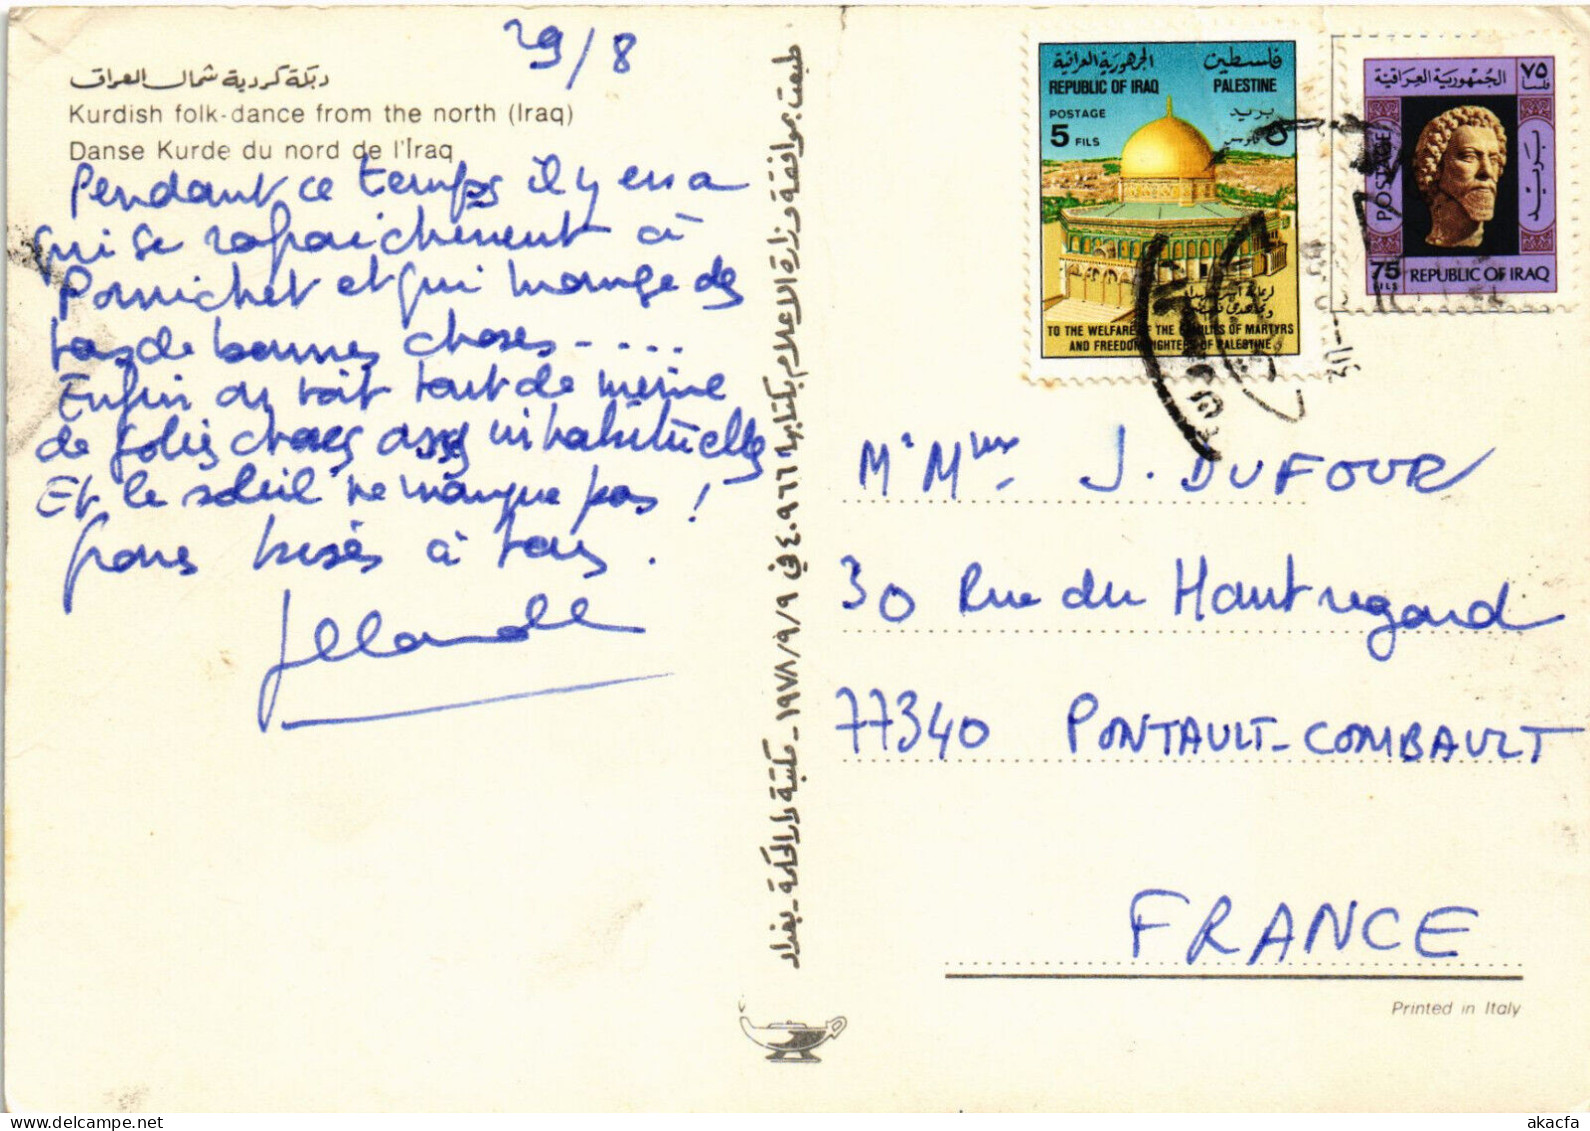 29/8
دبكة كردية شمال العراق
Kurdish folk-dance from the north (Iraq)
Danse Kurde du nord de l'Iraq
Pendant ce temps il y en a
qui se rafraichennent à
Pornichet et qui mange des
tas de bonnes choses - . . .
Enfin on voit tout de même
de jolies choses assez inhabituelles
Et le soleil ne manque pas !
gros bisés à tous .
طبعت بموافقة وزارة الاعلام بكتابها ٤٠٩٦٦ في ١٩٧٨/٩/٩ - مكتبة دار الحكمة - بغداد
الجمهورية العراقية
فلسطين
REPUBLIC OF IRAQ
PALESTINE
POSTAGE
بريد
5 FILS
٥ فلوس
TO THE WELFARE OF THE FAMILIES OF MARTYRS
AND FREEDOM FIGHTERS OF PALESTINE
الجمهورية العراقية
٧٥
فلسا
POSTAGE
بريد
75
FILS
REPUBLIC OF IRAQ
Mr Mme J. DUFOUR
30 Rue du Haut regard
77340 PONTAULT-COMBAULT
FRANCE
Printed in Italy